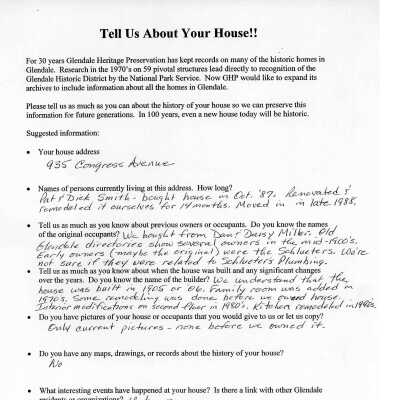 Tell Us About Your House!!
For 30 years Glendale Heritage Preservation has kept records on many of the historic homes in
Glendale. Research in the 1970's on 59 pivotal structures lead directly to recognition of the
Glendale Historic District by the National Park Service. Now GHP would like to expand its
archives to include information about all the homes in Glendale.
Please tell us as much as you can about the history of your house so we can preserve this
information for future generations. In 100 years, even a new house today will be historic.
Suggested information:
• Your house address
935 Congress Avenue
• Names of persons currently living at this address. How long?
Pat & Dick Smith - bought house in Oct. '87. Renovated &
remodeled it ourselves for 14 months. Moved in in late 1988.
• Tell us as much as you know about previous owners or occupants. Do you know the names
of the original occupants? We bought from Dan/Betsy Miller. Old
Glendale directories show several owners in the mid-1900's.
Early owners (maybe the original) were the Schlueters. We're
not sure if they were related to Schlueters Plumbing.
• Tell us as much as you know about when the house was built and any significant changes
over the years. Do you know the name of the builder? We understand that the
house was built in 1905 or 06. Family room was added in
1970's. Some remodeling was done before we owned house.
Interior modifications on second floor in 1980's. Kitchen remodeled in 1990s.
• Do you have pictures of your house or occupants that you would give to us or let us copy?
Only current pictures - none before we owned it.
• Do you have any maps, drawings, or records about the history of your house?
No
• What interesting events have happened at your house? Is there a link with other Glendale
residents or organizations?